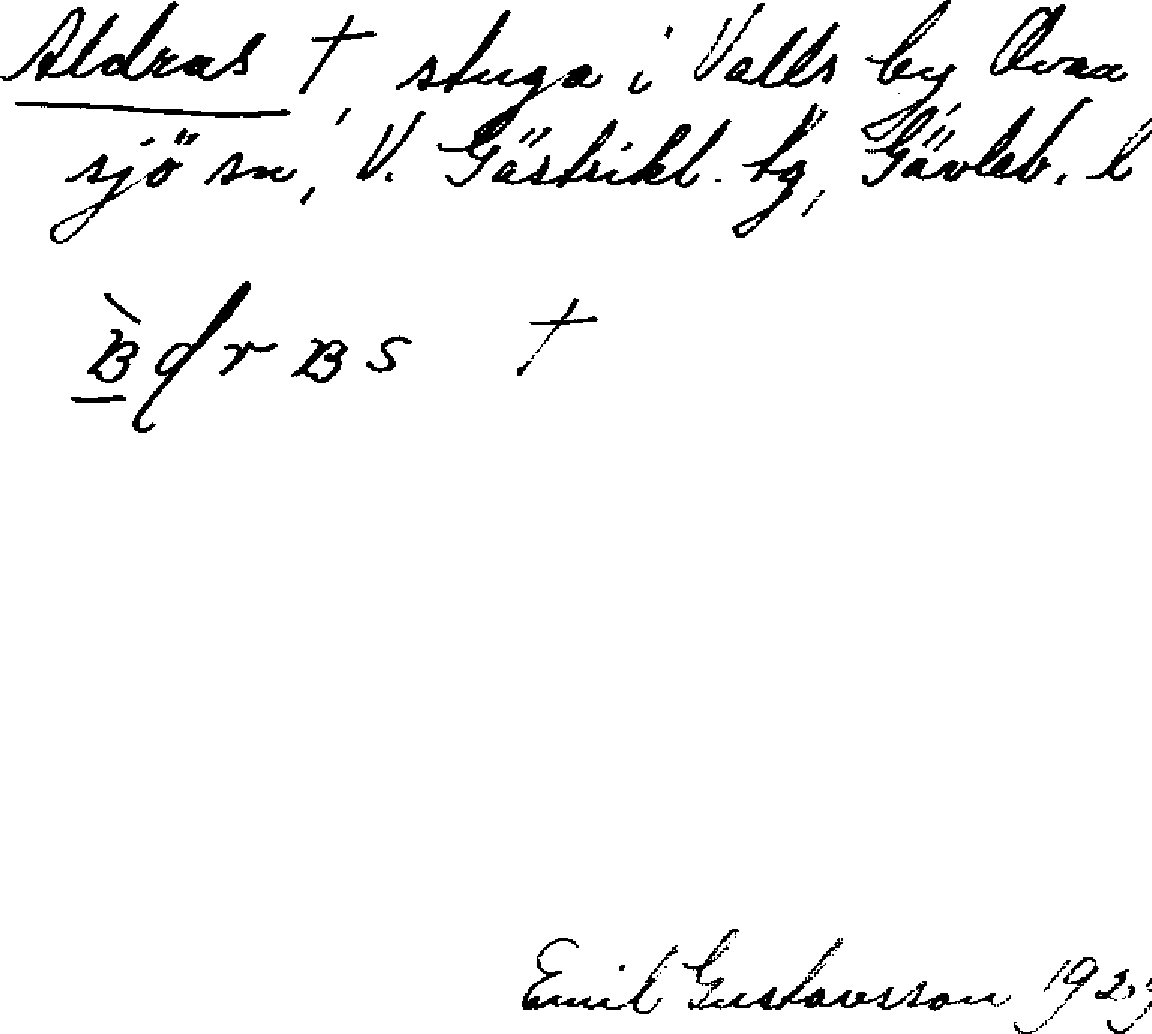 Aldras †, stuga i Valls by, Ovan
sjö sn, V. Gästrikl. tg, Gävleb. l
†
Emil Gustavsson 1923